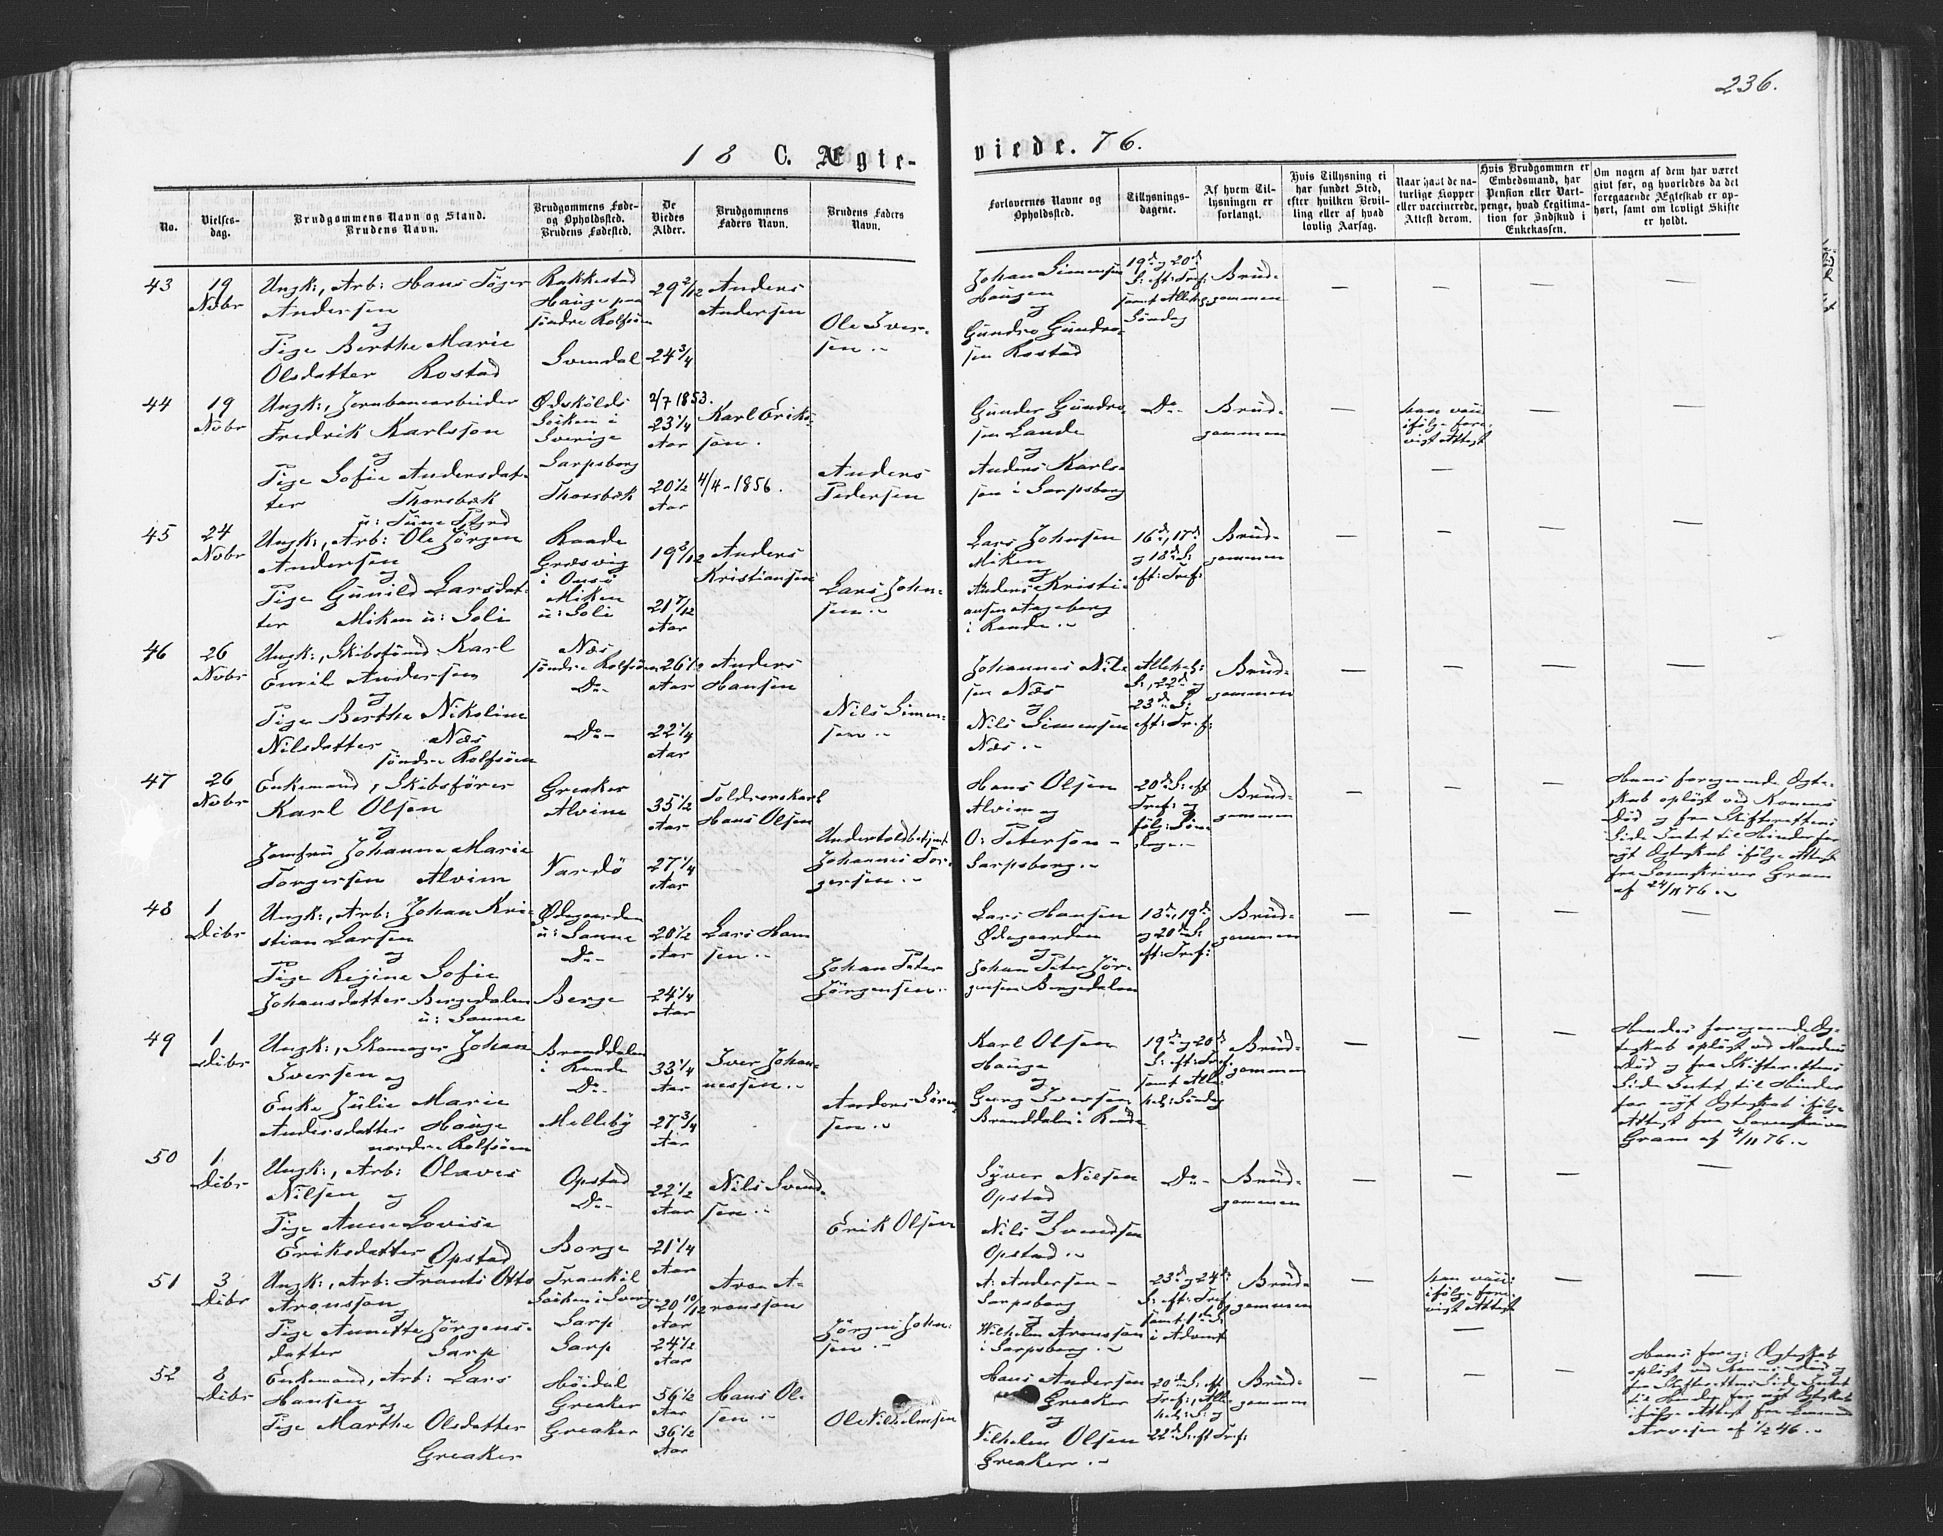 236.
18 C. Ægte-
viede. 76.
No.
Vielses-
dag.
Brudgommens Navn og Stand.
Brudens Navn.
Brudgommens Føde-
og Opholdssted.
Brudens Fødested.
De
Viedes
Alder.
Brudgommens
Faders Navn.
Brudens Faders
Navn.
Forlovernes Navne og
Opholdssted.
Tillysnings-
dagene.
Af hvem Til-
lysningen er
forlangt.
Hvis Tillysning ei
har fundet Sted,
efter hvilken Bevil-
ling eller af hvad
lovlig Aarsag.
Naar havt de na-
turlige Kopper
eller vaccinerede,
Attest derom.
Hvis Brudgommen er
Embedsmand, har
Pension eller Vart-
penge, hvad Legitima-
tion for Indskud i
Enkekassen.
Om nogen af dem har været
givt før, og hvorledes da det
foregaaende Ægteskab er op-
hørt, samt om lovligt Skifte
er holdt.
43
19
Nvbr
Ungk:, Arb: Hans
Andersen
og
Pige Berthe Marie
Olsdatter Rostad
Rakkestad
Hauge paa
søndre Rolfsøen
Svendal
29 2/12
24 3/4
Anders
Andersen
Ole Iver-
sen.-
Johan Simensen
Haugen
og
Gundro Gundro-
sen Rostad
19de og 20de
S: eft: Tref:
samt Alleh:
Søndag
Brud-
gommen
44
19
Nvbr
Ungk:, Jernbanearbeider
Fredrik Karlsson
og
Pige Sofie Andersdat-
ter Thorsbæk
u: Tune Pgrd
Ødskölds
Socken i
Sverige
Sarpsborg
Thorsbæk
2/7 1853.
23 1/4
Aar
20 1/2
Aar
Karl Eriks-
son.
4/4-1856.
Anders
Pedersen
Gunder Gundro-
sen Lande
Anders Karls-
son i Sarpsborg
Do-
Brud-
gommen
han vacc:
ifølge fore-
vist Attest
45
24
Nvbr
Ungk:, Arb: Ole Jörgen
Andersen
og
Pige Gunild Larsdat-
ter Miken u: Soli
Raade
Græsvig
i Onsø
Miken
u: Soli
19 8/12
21 7/12
Aar
Anders
Kristiansen
Lars John-
sen.-
Lars Johnsen
Miken
og
Anders Kristi-
ansen
i Raade.-
16de, 17de
og 18de S:
eft: Tref:
Brud-
gommen
46
26
Nvbr
Ungk:, Skibstømmd Karl
Emil Andersen
og
Pige Berthe Nikoline
Nilsdatter Næs
søndre Rolfsøen
Næs
søndre Rolfsøen
Do-
Do-
26 1/2
Aar
22 1/4
Aar
Anders
Hansen
Nils Simen-
sen.-
Johannes Nil-
sen Næs
og
Nils Simensen
Næs.-
Alleh:
S:, 22de og
23de S:
eft: Tref:
Brud-
gommen
47
26
Nvbr
Enkemand, Skibsfører
Karl Olsen
og
Jomfru Johanne Marie
Torgersen Alvim
Greaker
Alvim
Vardö
35 1/2
Aar
27 1/4
Aar
Toldroerskarl
Hans Olsen
Undertoldbetjent
Johannes Tor-
gersen.-
Hans Olsen
Alvim og
O: Peterson-
Sarpsborg.-
20de S: eft
Tref: og
følg: Søn-
dage.-
Brud-
gommen
Hans foregaaende Ægte-
skab opløst ved Konens
Død og fra Skifterettens
Side Intet til Hinder for
nyt Ægteskab ifølge Attest
fra Sorenskriver Gram
af 24/11 76.-
48
1
Dcbr
Ungk:, Arb: Johan Kri-
stian Larsen
og
Pige Regine Sofie
Johansdatter Bergedalen
u: Sanne
Ødegaarden
u: Sanne
Do-
Berge
20 1/2
Aar
24 1/4
Aar
Lars Han-
sen.-
Johan Peter
Jörgensen.-
Lars Hansen
Ødegaarden
og
Johan Peter Jör-
gensen Bergedalen
18de, 19de
og 20de S:
eft: Tref:
Brud-
gommen
49
1
Dcbr
Ungk:, Skomager Johan
Iversen og
Enke Julie Marie
Andersdatter Hauge
nordre Rolfsøen
Branddalen
i Raade
Do-
Melleby
33 1/4
Aar
27 3/4
Aar
Iver Johan-
nessen.-
Anders Sören-
sen.-
Karl Olsen
Hauge
og
Georg Iversen
Branddalen i Raade
19de og 20de
S: eft: Tref:
samt Alle-
hel: Söndag
Brud-
gommen
Hendes foregaaende Æg-
teskab opløst ved Mandens
Død og fra Skifterettens
Side Intet til Hinder
for nyt Ægteskab ifølge
Attest fra Sorenskriver
Gram af 4/11 76.-
50
1
Dcbr
Ungk:, Arb: Olaves
Nilsen og
Pige Anne Lovise
Eriksdatter Opstad
Opstad
Do-
Borge
22 1/2
Aar
21 1/4
Aar
Nils Svend-
sen.-
Erik Olsen
Syver Nilsen
Opstad
og
Nils Svendsen
Opstad.-
Do-
Brud-
gommen
51
3
Dcbr
Ungk:, Arb: Frants Otto
Aronsson
og
Pige Annette Jörgens-
datter Sarp
Trankil
Socken i Sverige
Sarp
Sarp
20 10/12
Aar
24 1/2
Aar
Aron A-
ronsson
Jörgen John-
sen.-
A: Andersen-
Sarpsborg
og
Wilhelm Aronsson
i Sarpsborg.-
23de og 24de
S: eft: Tref:
samt 1ste S:
i Advent
Brud-
gommen
han vacc:
ifølge fore-
vist Attest
52
8
Dcbr
Enkemand, Arb: Lars
Hansen og
Pige Marthe Olsdatter
Greaker
Höidal
Greaker
Greaker
56 1/2
Aar
36 1/2
Aar
Hans Ol-
sen.-
Ole Vilhelmsen
Hans Andersen
Greaker
og
Vilhelm Olsen
Greaker.-
20de S: eft
Tref:, Alle-
hel: S: og
22de S: eft Tref:
Brud-
gommen
Hans foreg: Ægteskab
opløst ved Konens Død og
fra Skifterettens Side Intet
til Hinder for nyt Ægteskab
ifølge Attest fra
Arvesen af 1/2 46.-